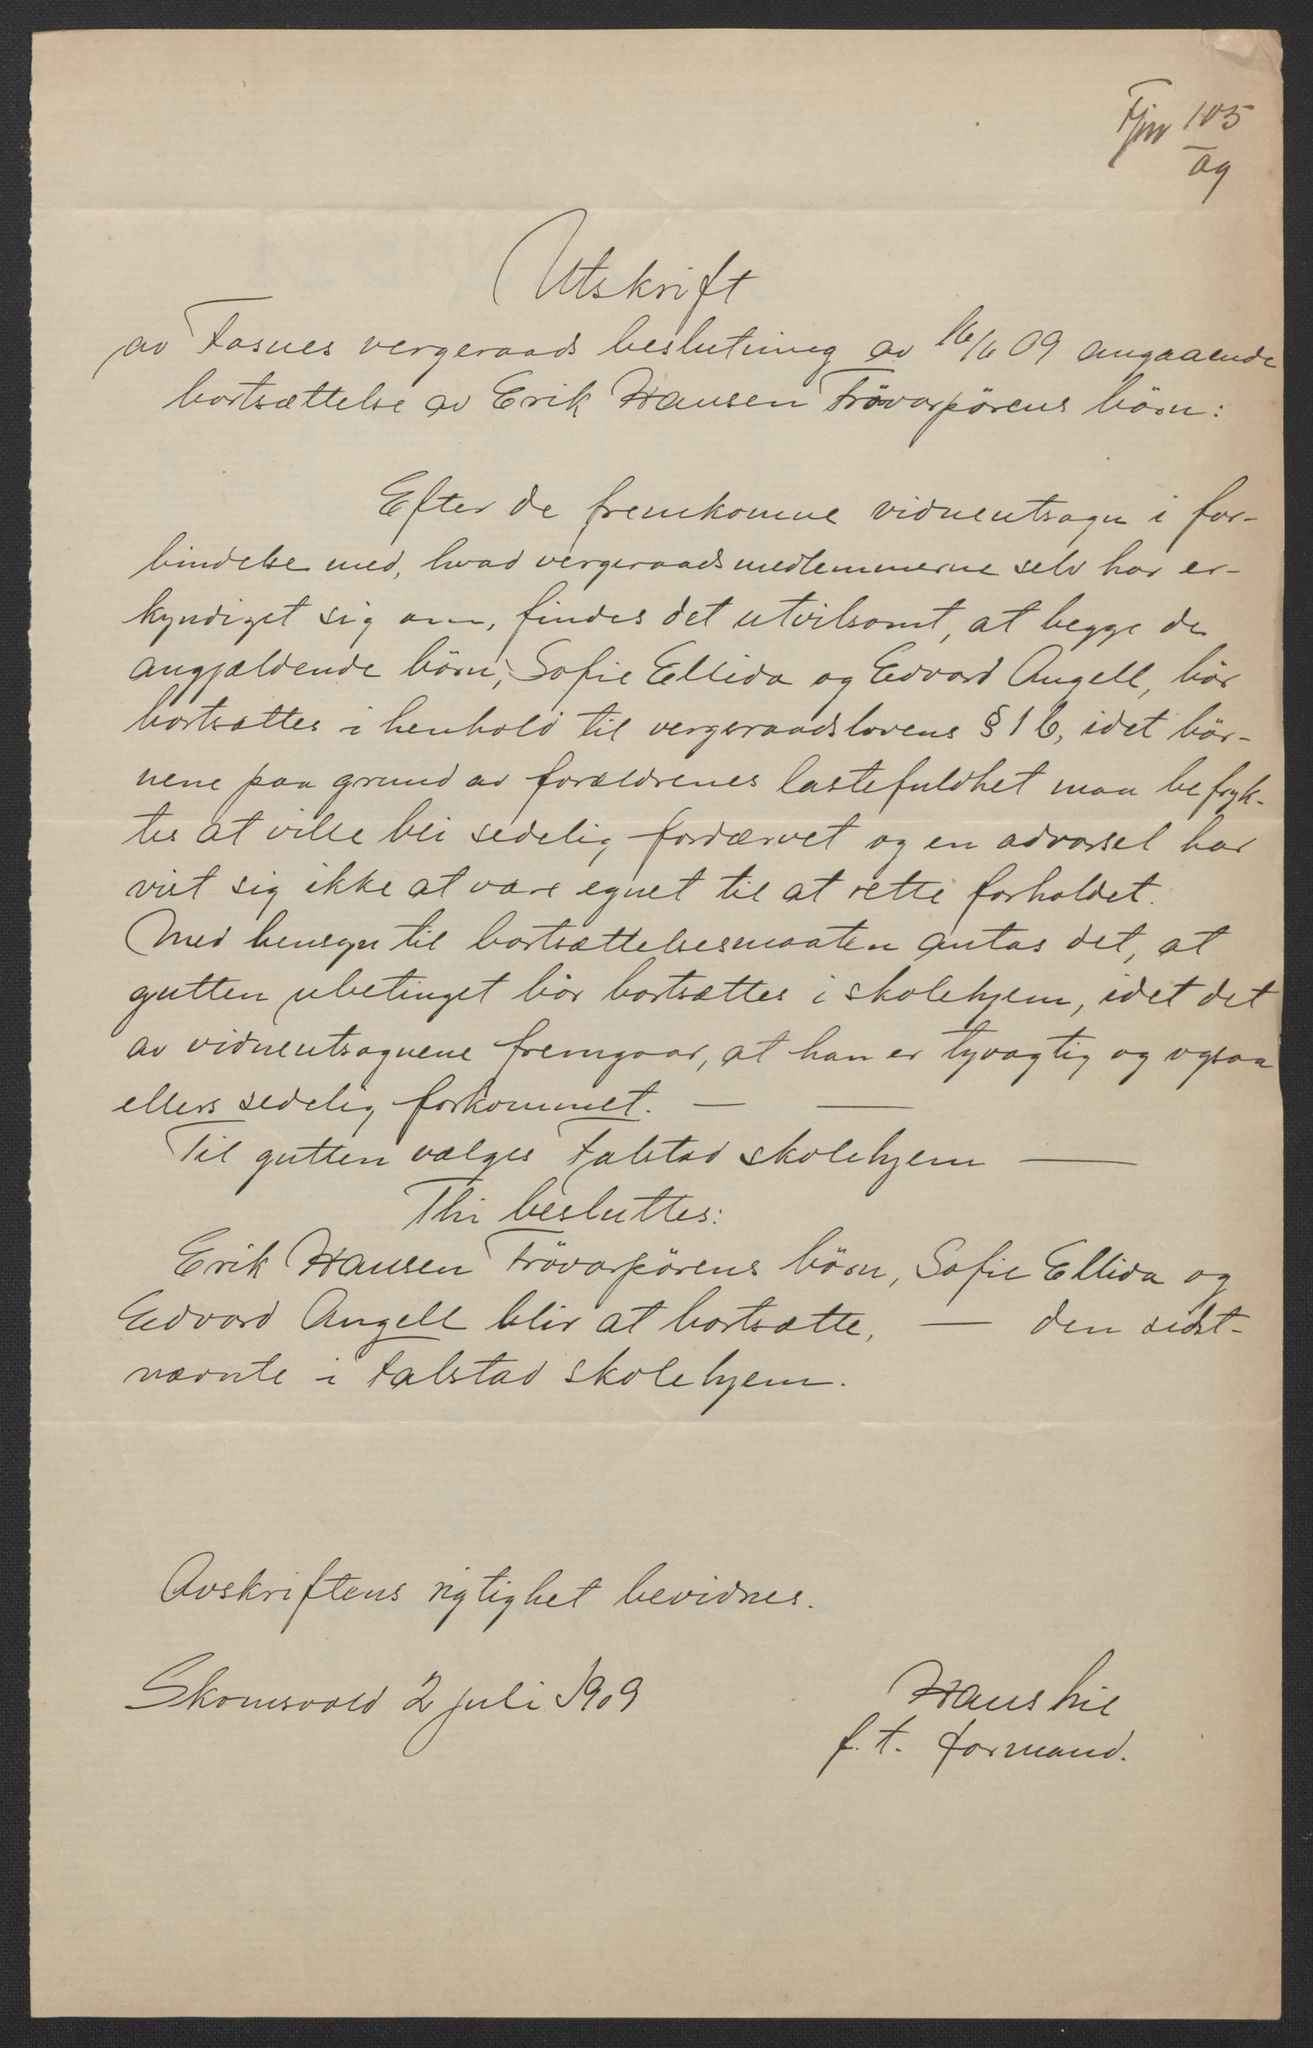 Fjnr 105
09
Utskrift
av Fosnes vergeraads beslutning av 16/6 09 angaaende
bortsættelse av Erik Hansen Frövarpörens börn:
Efter de fremkomne vidneutsagn i for-
bindelse med, hvad vergeraadsmedlemmerne selv har er-
kyndiget sig om, findes det utvilsomt, at begge de
angjældende börn, Sofie Ellida og Edvard Angell, bör
bortsættes i henhold til vergeraadslovens § 1 b, idet bör-
nene paa grund av forældrenes lastefuldhet maa befryk-
tes at ville bli sedelig fordærvet og en advarsel har
vist sig ikke at være egnet til at rette forholdet.
Med hensyn til bortsættelsesmaaten antas det, at
gutten ubetinget bör bortsættes i skolehjem, idet det
av vidneutsagnene fremgaar, at han er tyvagtig og ogsaa
ellers sedelig forkommet. — —
Til gutten vælges Falstad skolehjem —
Thi besluttes:
Erik Hansen Frövarpörens börn, Sofie Ellida og
Edvard Angell blir at bortsætte, — den sidst-
nævnte i Falstad skolehjem.
Avskriftens rigtighet bevidnes.
Skomsvold 2 juli 1909
Hans Lie
f. t. formand.